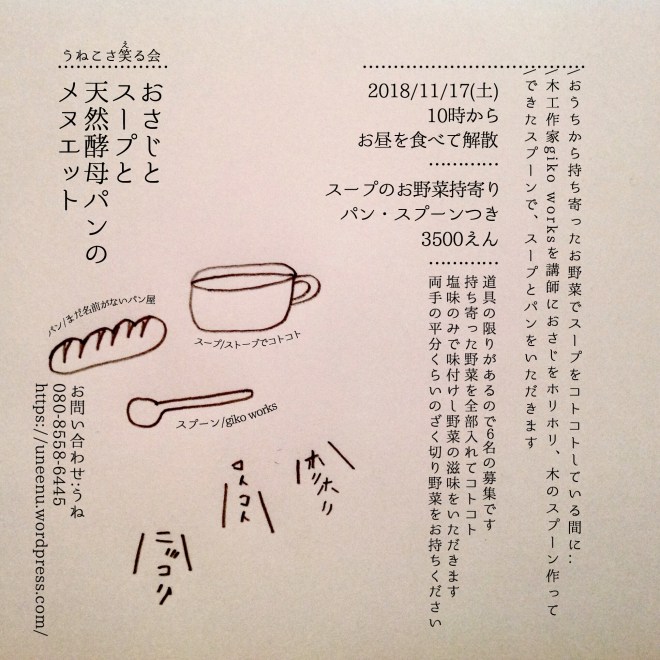 うねこさ笑る会
え
おさじと
スープと
天然酵母パンの
メヌエット
\おうちから持ち寄ったお野菜でスープをコトコトしている間に‥
\木工作家giko worksを講師におさじをホリホリ、木のスプーン作って
\できたスプーンで、スープとパンをいただきます
2018/11/17(土)
10時から
お昼を食べて解散
スープのお野菜持寄り
パン・スプーンつき
3500えん
道具の限りがあるので6名の募集です
持ち寄った野菜を全部入れてコトコト
塩味のみで味付けし野菜の滋味をいただきます
両手の平分くらいのざく切り野菜をお持ちください
パン/まだ名前がないパン屋
スープ/ストーブでコトコト
スプーン/giko works
ホリホリ
コトコト
ニッコリ
お問い合わせ:うね
080-8558-6445
https://uneenu.wordpress.com/